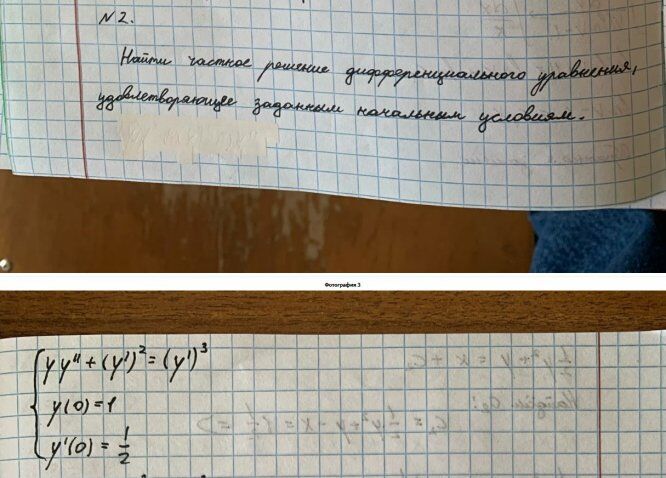 N 2.
Найти частное решение дифференциального уравнения,
удовлетворяющее заданным начальным условиям.
Фотография 3
yy'' + (y')² = (y')³
y(0) = 1
y'(0) = 1/2